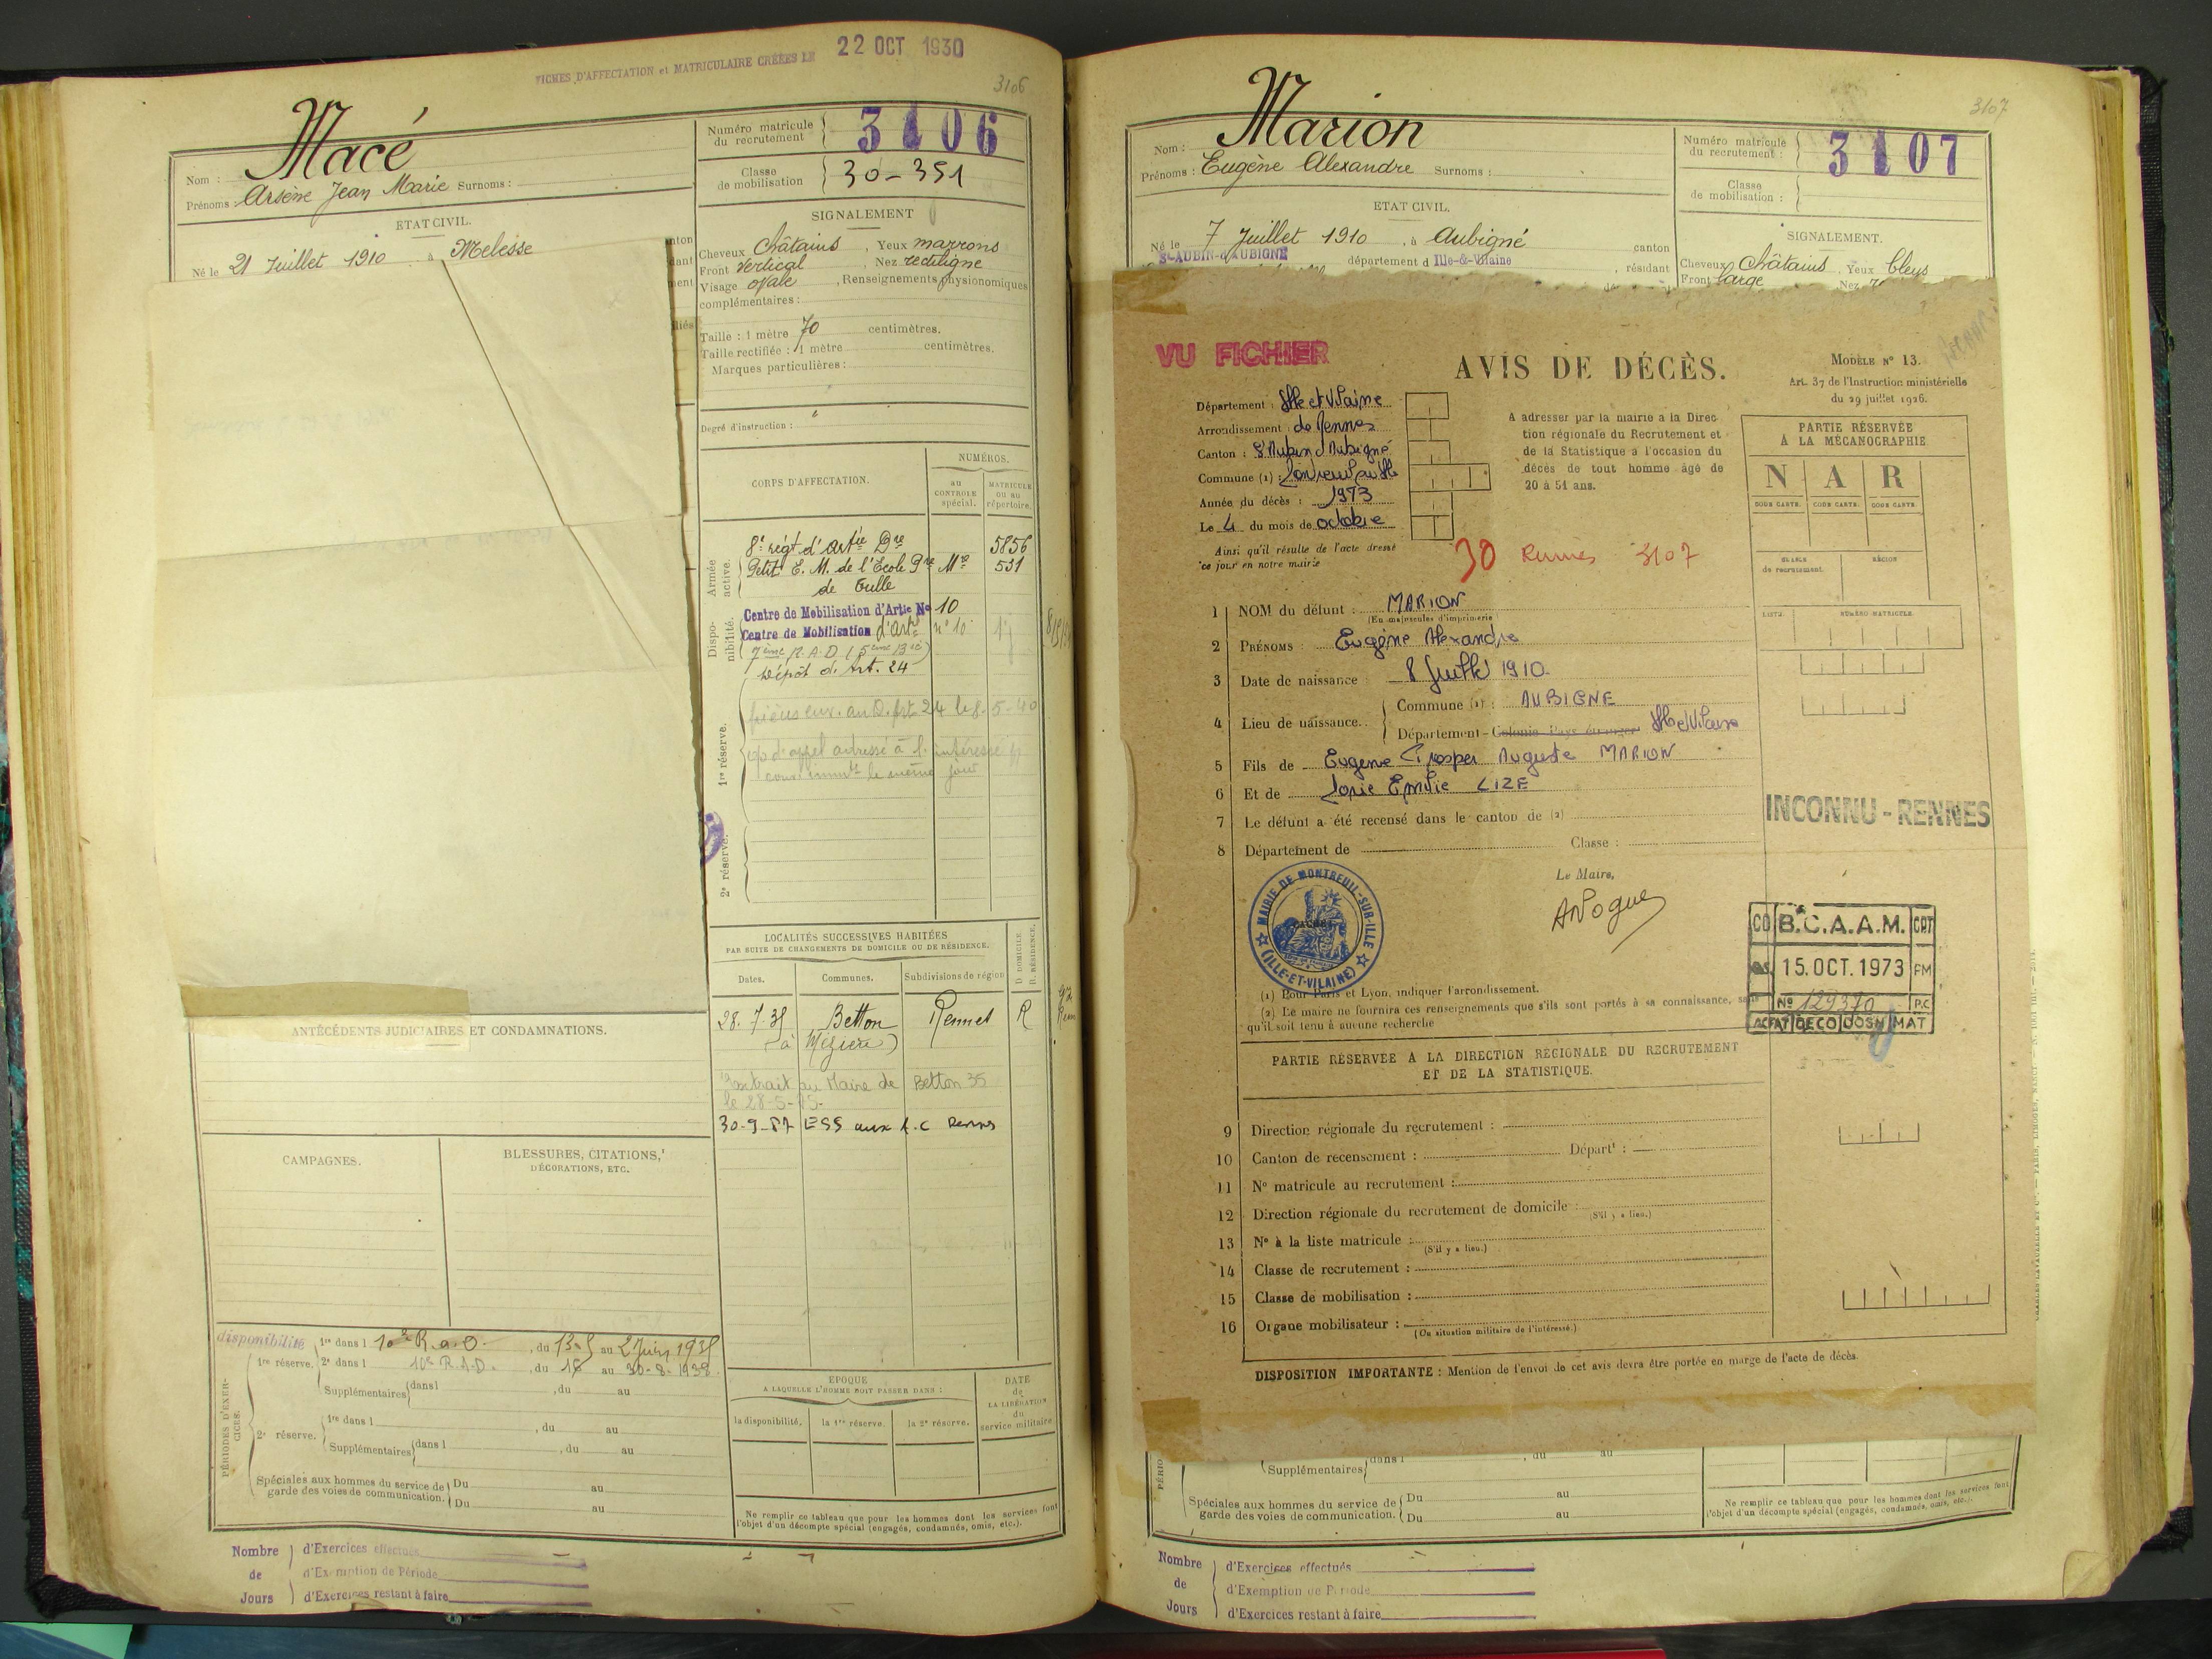 FICHES D'AFFECTATION et MATRICULAIRE CRÉÉES LE 22 OCT 1930
3106
Macé
Nom :
Prénoms : Arsène Jean Marie Surnoms :
Numéro matricule du recrutement 3106
Classe de mobilisation 30-351
ETAT CIVIL.
Né le 21 Juillet 1910 à Melesse
SIGNALEMENT
Cheveux Châtains, Yeux marrons
Front Vertical, Nez rectiligne
Visage ovale, Renseignements physionomiques
complémentaires :
Taille : 1 mètre 70 centimètres.
Taille rectifiée : 1 mètre centimètres.
Marques particulières :
Degré d'instruction :
CORPS D'AFFECTATION.
NUMÉROS.
au CONTROLE spécial.
MATRICULE OU AU répertoire.
Armée active.
8e régt d'artie Dre 5856
Petit E. M. de l'École Pre Mre 531
de Tulle
Dispo-nibilité.
Centre de Mobilisation d'Artie No 10
Centre de Mobilisation d'Artie n° 10
Dépôt d'Art. 24
1re réserve.
2e réserve.
LOCALITÉS SUCCESSIVES HABITÉES
PAR SUITE DE CHANGEMENTS DE DOMICILE OU DE RÉSIDENCE.
Dates. Communes. Subdivisions de région D. DOMICILE R. RÉSIDENCE.
28.7.35 Betton Rennes R
(à Mézière)
au Maire de Betton 35
30-9-57 ESS aux Rennes
ANTÉCÉDENTS JUDICIAIRES ET CONDAMNATIONS.
CAMPAGNES.
BLESSURES, CITATIONS,
DÉCORATIONS, ETC.
PÉRIODES D'EXERCICES.
disponibilité 1re dans l 10e R.a.D., du 13-5 au 2 Juin 1935
1re réserve. 2e dans l 10e R.A.D., du au 30-8-1938
Supplémentaires dans l , du au
2e réserve. 1re dans l , du au
Supplémentaires dans l , du au
Spéciales aux hommes du service de garde des voies de communication. Du au
Du au
EPOQUE
A LAQUELLE L'HOMME DOIT PASSER DANS :
DATE de LA LIBÉRATION du service militaire
la disponibilité. la 1re réserve. la 2e réserve.
Ne remplir ce tableau que pour les hommes dont les services font
l'objet d'un décompte spécial (engagés, condamnés, omis, etc.).
Nombre de Jours
d'Exercices effectués
d'Exemption de Période
d'Exercices restant à faire
3107
Marion
Nom :
Prénoms : Eugène Alexandre Surnoms :
Numéro matricule du recrutement : 3107
Classe de mobilisation :
ETAT CIVIL.
Né le 7 Juillet 1910, à Aubigné canton
St-AUBIN-d'AUBIGNÉ département d Ille-&-Vilaine, résidant
SIGNALEMENT.
Cheveux Châtains, Yeux bleus
Front large Nez
VU FICHIER
AVIS DE DÉCÈS.
MODÈLE N° 13.
Art. 37 de l'Instruction ministérielle
du 29 juillet 1926.
Département : Ille et Vilaine
Arrondissement : de Rennes
Canton : St Aubin d'Aubigné
Commune (1) :
Année du décès : 1973
Le 4 du mois de octobre
Ainsi qu'il résulte de l'acte dressé
ce jour en notre mairie
A adresser par la mairie à la Direc-
tion régionale du Recrutement et
de la Statistique à l'occasion du
décès de tout homme âgé de
20 à 51 ans.
PARTIE RÉSERVÉE
À LA MÉCANOGRAPHIE
N A R
CODE CARTE. CODE CARTE. CODE CARTE.
BUREAU de recrutement. RÉGION
LISTE. NUMÉRO MATRICULE
30 Rennes 3107
1 NOM du défunt : MARION
(En majuscules d'imprimerie)
2 PRÉNOMS : Eugène Alexandre
3 Date de naissance 8 Juillet 1910
4 Lieu de naissance. Commune (1) : AUBIGNE
Département - Colonie-Pays étranger Ille et Vilaine
5 Fils de Eugène Prosper Auguste MARION
6 Et de Emilie LIZE
7 Le défunt a été recensé dans le canton de (2)
8 Département de Classe :
INCONNU - RENNES
Le Maire,
MAIRIE DE MONTREUIL-SUR-ILLE
(ILLE-ET-VILAINE)
CO B.C.A.A.M. CRT
15.OCT.1973 FM
No 129370 P.C
DECO MAT
(1) Pour Paris et Lyon, indiquer l'arrondissement.
(2) Le maire ne fournira ces renseignements que s'ils sont portés à sa connaissance, sans
qu'il soit tenu à aucune recherche
PARTIE RÉSERVÉE A LA DIRECTION RÉGIONALE DU RECRUTEMENT
ET DE LA STATISTIQUE.
9 Direction régionale du recrutement :
10 Canton de recensement : Départt :
11 N° matricule au recrutement :
12 Direction régionale du recrutement de domicile :
(S'il y a lieu.)
13 N° à la liste matricule :
(S'il y a lieu.)
14 Classe de recrutement :
15 Classe de mobilisation :
16 Organe mobilisateur :
(Ou situation militaire de l'intéressé.)
DISPOSITION IMPORTANTE : Mention de l'envoi de cet avis devra être portée en marge de l'acte de décès.
Supplémentaires dans l , du au
Spéciales aux hommes du service de garde des voies de communication. Du au
Du au
Ne remplir ce tableau que pour les hommes dont les services font
l'objet d'un décompte spécial (engagés, condamnés, omis, etc.).
Nombre de Jours
d'Exercices effectués
d'Exemption de Période
d'Exercices restant à faire